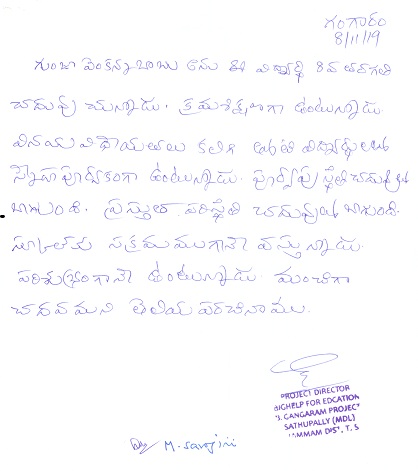 గంగారం
8/11/19
గుంజా వెంకన్నబాబు అను ఈ విద్యార్థి 8వ తరగతి
చదువు చున్నాడు. క్రమశిక్షణగా ఉంటున్నాడు
వినయ విధేయతలు కలిగి తోటి విద్యార్థులతో
స్నేహపూర్వకంగా ఉంటున్నాడు. పూర్వపు స్థితి చదువులో
బాగుంది. ప్రస్తుత పరిస్థితి చదువులో బాగుంది.
స్కూల్‌కు సక్రమముగానే వస్తున్నాడు.
పరిశుభ్రంగానే ఉంటున్నాడు. మంచిగా
చదవమని తెలియపరచినాము.
PROJECT DIRECTOR
BIGHELP FOR EDCATION
GANGARAM PROJECT
SATHUPALLY (MDL)
KHAMMAM DIST, T, S
M. Sarojini